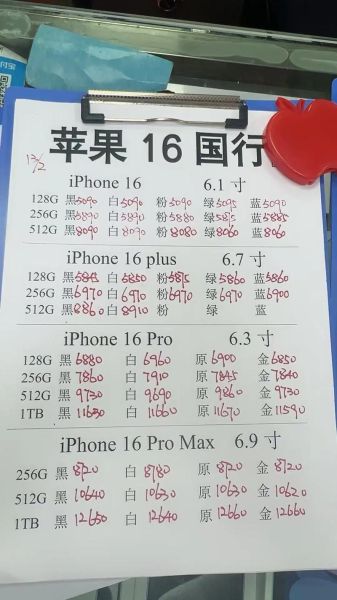 苹果 16 国行
12/2
iPhone 16 6.1 寸
128G 黑5090 白5090 粉5090 绿5095 蓝5090
256G 黑5890 白5890 粉5880 绿5875 蓝5885
512G 黑8090 白8090 粉8080 绿8060 蓝8060
iPhone 16 plus 6.7 寸
128G 黑5845 白5850 粉5875 绿5860 蓝5860
256G 黑6970 白6970 粉6970 绿6970 蓝6900
512G 黑8860 白8910 粉 绿 蓝
iPhone 16 Pro 6.3 寸
128G 黑6880 白6960 原6900 金6850
256G 黑7860 白7910 原7845 金7840
512G 黑9730 白9690 原9860 金9730
1TB 黑11630 白11660 原11670 金11590
iPhone 16 Pro Max 6.9 寸
256G 黑8720 白8780 原8720 金8720
512G 黑10640 白10630 原10630 金10620
1TB 黑12650 白12640 原12660 金12660